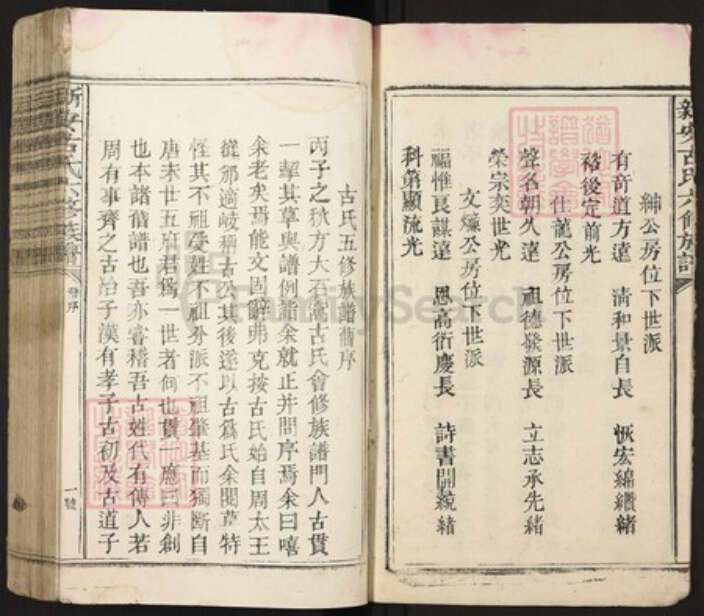 新安古氏六修族譜
紳公房位下世派
有奇道方遠 清和景自長 恢宏綿纘緒
裕後定前光
仕龍公房位下世派
聲名朝久達 祖德發源長 立志承先緒
榮宗奕世光
文燦公房位下世派
福惟良謀達 恩高衍慶長 詩書開統緒
科第顯流光
古氏五修族譜舊序
丙子之秋方大石 古氏會修族譜門人古貫
一挈其草與譜例詣余就正并問序焉余曰嘻
余老矣曷能文固辭弗克按古氏始自周太王
從邠適岐稱古公其後遂以古爲氏余閱草特
怪其不祖受姓不祖分派不祖肇基而獨斷自
唐末世五府君爲一世者何也貫一應曰非創
也本諸舊譜也吾亦嘗稽吾古姓代有傳人若
周有事齊之古冶子漢有孝子古初及古道子
新安古氏六修族譜
舊序
一號
FamilySearch